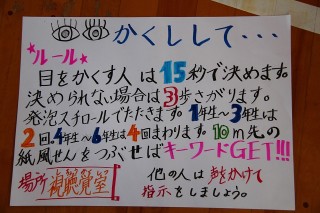 かくしして・・・
*ルール*
目をかくす人は15秒で決めます。
決められない場合は3歩さがります。
発泡スチロールでたたきます。1年生〜3年生は
2回。4年生〜6年生は4回まわります。10m先の
紙風せんをつぶせばキーワードGET!!!
場所 視聴覚室 他の人は声をかけて
指示をしましょう。